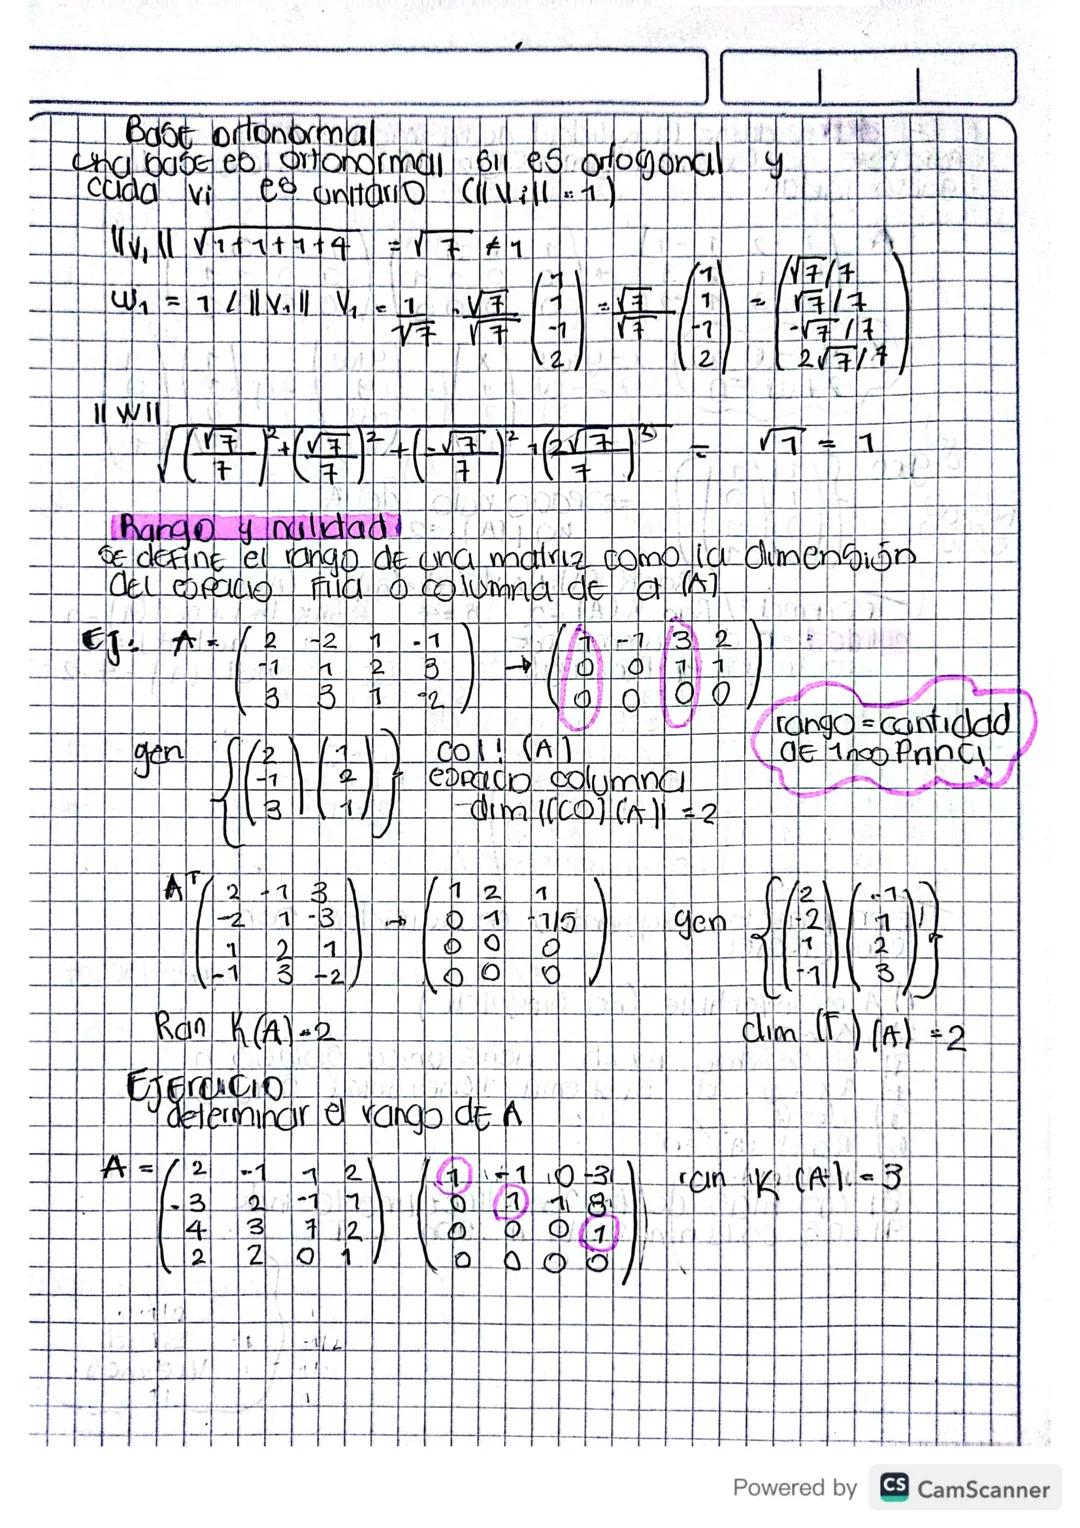 Base ortonormal
una base es ortonormal sii es ortogonal y
cada vi es unitario (||Vi|| = 1)
||V₁|| √1+1+1+4 = √7 ≠ 1
W₁ = 1 / ||V₁|| V₁ = 1/√7 · √7/√7 (1 1 -1 2) = √7/√7 (1 1 -1 2) = (√7/7 √7/7 -√7/7 2√7/7)
|| W ||
√((√7/7)² + (√7/7)² + (-√7/7)² + (2√7/7)²) = √1 = 1
Rango y nulidad
se define el rango de una matriz como la dimensión
del espacio fila o columna de a (A)
EJ: A = (2 -2 1 -1 → (1 -1 3 2
-1 1 2 3 0 0 1 1
3 3 1 -2) 0 0 0 0)
rango = cantidad
de 1nos Princi
gen {(2 -1 3) (1 2 1)} col! (A)
espacio columna
dim ((CO) (A)) = 2
Aᵀ (2 -1 3 → (1 2 1
-2 1 -3 0 1 -1/5
1 2 1 0 0 0
-1 3 -2) 0 0 0)
gen {(2 -2 1 -1) (-1 1 2 3)}
Ran K(A) = 2 dim (F) (A) = 2
Ejercicio
determinar el rango de A
A = (2 -1 1 2 (1 -1 0 -3 ran K (A) = 3
-3 2 -1 1 0 1 1 8
4 3 7 2 0 0 0 1
2 2 0 1) 0 0 0 0)
Powered by CS CamScanner